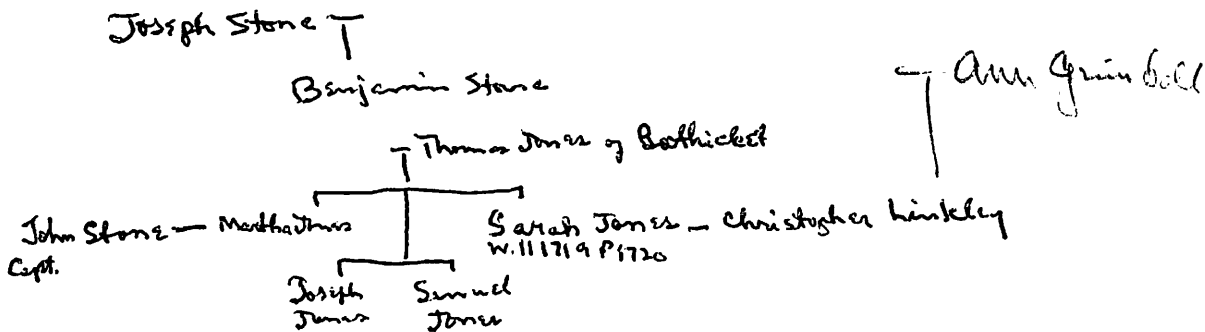 Joseph Stone
Benjamin Stone
Ann Grimboll
Thomas Jones of Boothicket
John Stone — Martha Jones
Sarah Jones — Christopher Linkley
Capt.
W. 11 1719 P1720
Joseph Samuel
Jones Jones